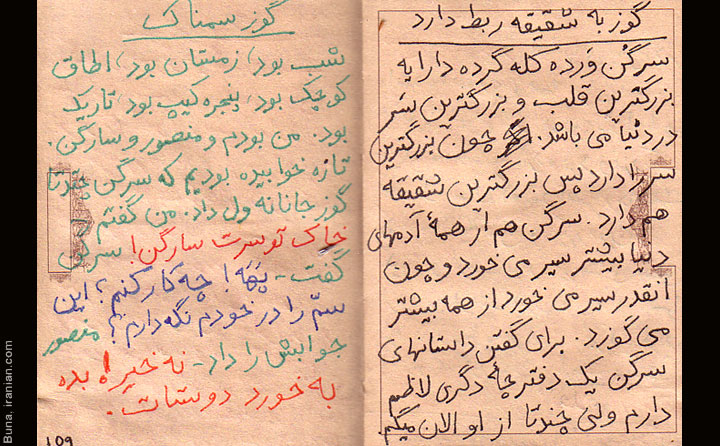 گوز به شقیقه ربط دارد
سرگن وَرده کله گرده دارایه
بزرگترین قلب و بزرگترین سَر
در دنیا می باشد. چون بزرگترین
سر را دارد پس بزرگترین شقیقه
هم دارد. سرگن هم از همهٔ آدمهای
دنیا بیشتر سیر می خورد و چون
انقدر سیر می خورد از همه بیشتر
می گوزد. برای گفتن داستانهای
سرگن یک دفترچهٔ دگری لاظم
دارم ولی چندتا از او الان میگم
گوز سمناک
شب بود، زمستان بود، اطاق
کوچک بود، پنجره کیپ بود، تاریک
بود. من بودم و منصور و سارگن.
تازه خوابیده بودیم که سرگن چندتا
گوز جانانه ول داد. من گفتم
خاک تو سرت سارگن! سرگن
گفت - پَهَه! چه کار کنم؟ این
سمّ را در خودم نگه دارم؟ منصور
جوابش را داد - نه خیر! ه بده
به خورد دوستات.
۱۵۹
Buna, iranian.com